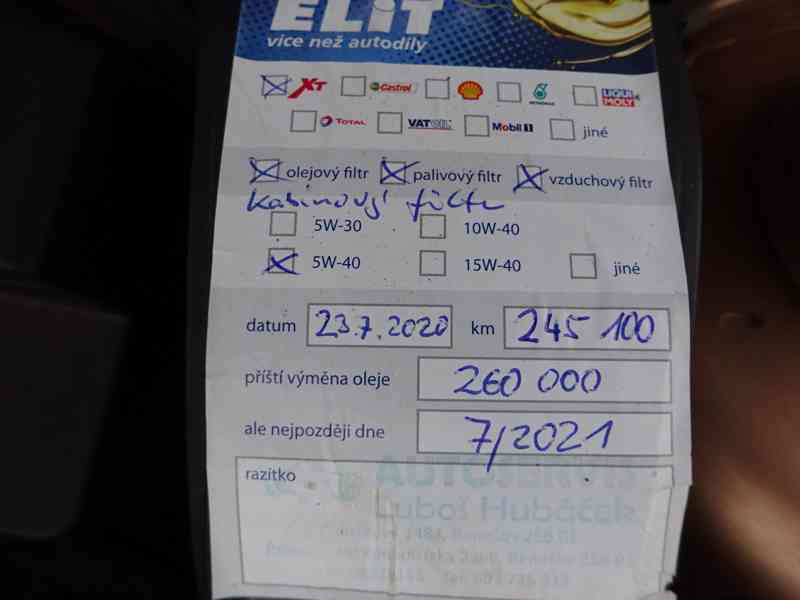 ELIT
více než autodíly
XT Castrol PETRONAS LIQUI MOLY
TOTAL VATOIL Mobil 1 jiné
olejový filtr palivový filtr vzduchový filtr
kabinový filtr
5W-30 10W-40
5W-40 15W-40 jiné
datum 23.7.2020 km 245 100
příští výměna oleje 260 000
ale nejpozději dne 7/2021
razítko
AUTOSERVIS
Luboš Hubáček